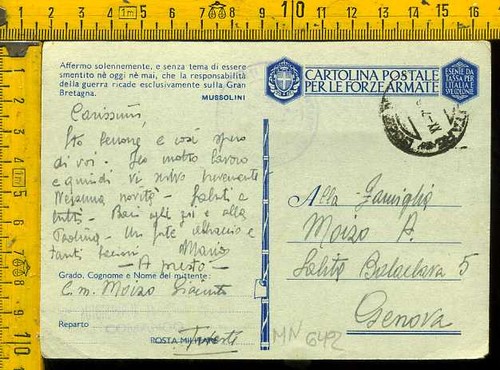 Affermo solennemente, e senza tema di essere
smentito nè oggi nè mai, che la responsabilità
della guerra ricade esclusivamente sulla Gran
Bretagna.
MUSSOLINI
CARTOLINA POSTALE
PER LE FORZE ARMATE
ESENTE DA
TASSA PER
L'ITALIA E
SVE COLONIE
Carissimi,
Sto benone e così spero
di voi. molto lavoro
e quindi vi scrivo brevemente
Nessuna novità - Saluti a
tutti - Baci agli zii e alla
Paolina - Un forte abbraccio e
tanti bacioni Mario
- A presto -
Grado, Cognome e Nome del mittente:
C.m. Moizo Giacinto
Reparto
POSTA MILITARE
Trieste
Alla Famiglia
Moizo A.
Salita Balaclava 5
Genova
MN 642